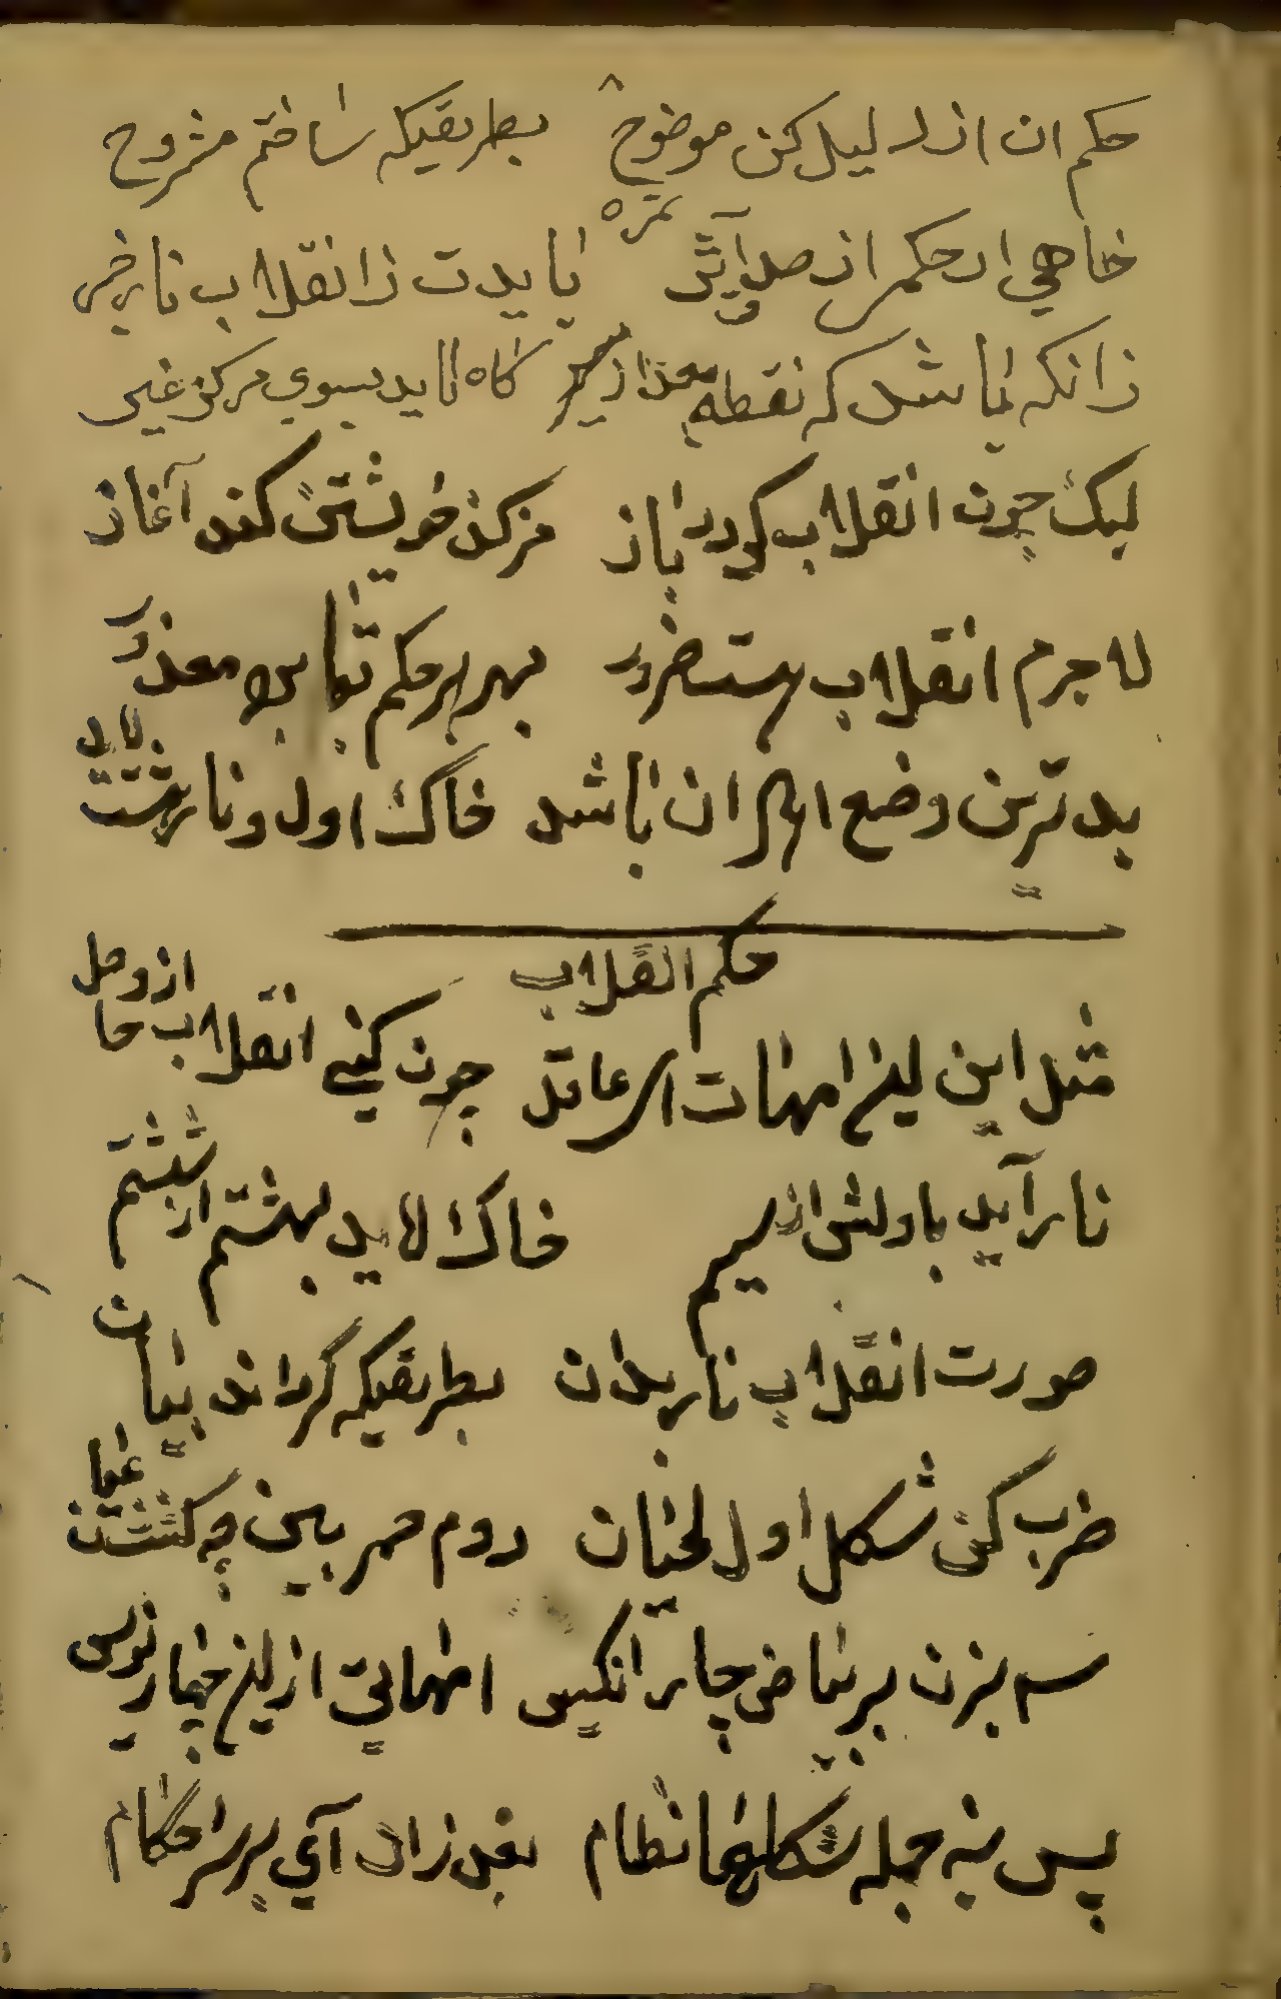 حکم ان از دلیل کن موضوح بطریقیکه ساختم مشروح
خاهی ار حکمر از صد آیئر نمره نایدت ز انقلاب نار خبر
زانکه باشد که نقطه از سیر کاه لاید بسوی مرکز غیر
لیک چون انقلاب کردد باز مرکز خویشتن کند آغاز
لا جرم انقلاب هست ضرور بهر هر حکم تا معذور
بدترین وضع اهل ان باشد خاک اول و نار هشت لاید
حکم انقلاب
مثل این لیخ امهات ار عاقل چون کنی انقلاب حا از وصل
نار آید باولش از سیم خاک لاید بهشتم از ششم
صورت انقلاب نار بدان بطریقیکه کرداند بیان
ضرب کن شکل اول لحیان دوم هم ببین چه کشتن عیا
سه بزن بر بیاض چار انکیس امهاتی از لیخ چهار نویس
پس بنه جمله شکلها نظام بعد زان آی بر سر احکام